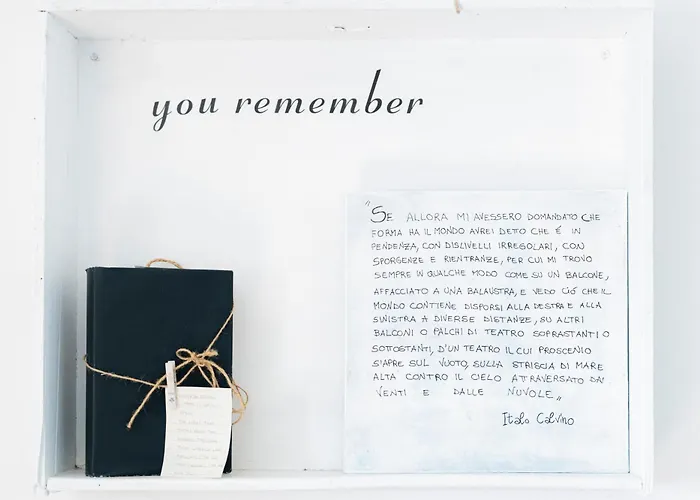 you remember
"SE ALLORA MI AVESSERO DOMANDATO CHE
FORMA HA IL MONDO AVREI DETTO CHE É IN
PENDENZA, CON DISLIVELLI IRREGOLARI, CON
SPORGENZE E RIENTRANZE, PER CUI MI TROVO
SEMPRE IN QUALCHE MODO COME SU UN BALCONE,
AFFACCIATO A UNA BALAUSTRA, E VEDO CIÓ CHE IL
MONDO CONTIENE DISPORSI ALLA DESTRA E ALLA
SINISTRA A DIVERSE DISTANZE, SU ALTRI
BALCONI O PALCHI DI TEATRO SOPRASTANTI O
SOTTOSTANTI, D'UN TEATRO IL CUI PROSCENIO
S'APRE SUL VUOTO, SULLA STRISCIA DI MARE
ALTA CONTRO IL CIELO ATTRAVERSATO DAI
VENTI E DALLE NUVOLE"
Italo Calvino